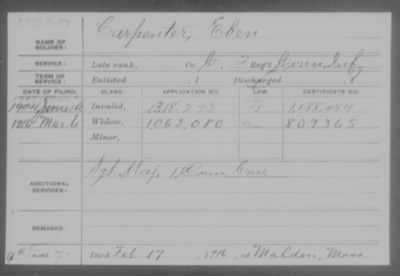 DEAD
NAME OF SOLDIER: Carpenter, Eben
SERVICE: Late rank, Co. C, 2 Reg't Conn. Inf
TERM OF SERVICE: Enlisted , 1 Discharged , 1
DATE OF FILING. CLASS. APPLICATION NO. LAW. CERTIFICATE NO.
1904 Invalid, 1,318,293 1,088,484
1916 Mar. 6 Widow, 1,062,080 809,365
Minor,
ADDITIONAL SERVICES: Sgt. Maj. 1 Conn. Cav.
REMARKS:
Died Feb 17, 1916, at Malden, Mass.